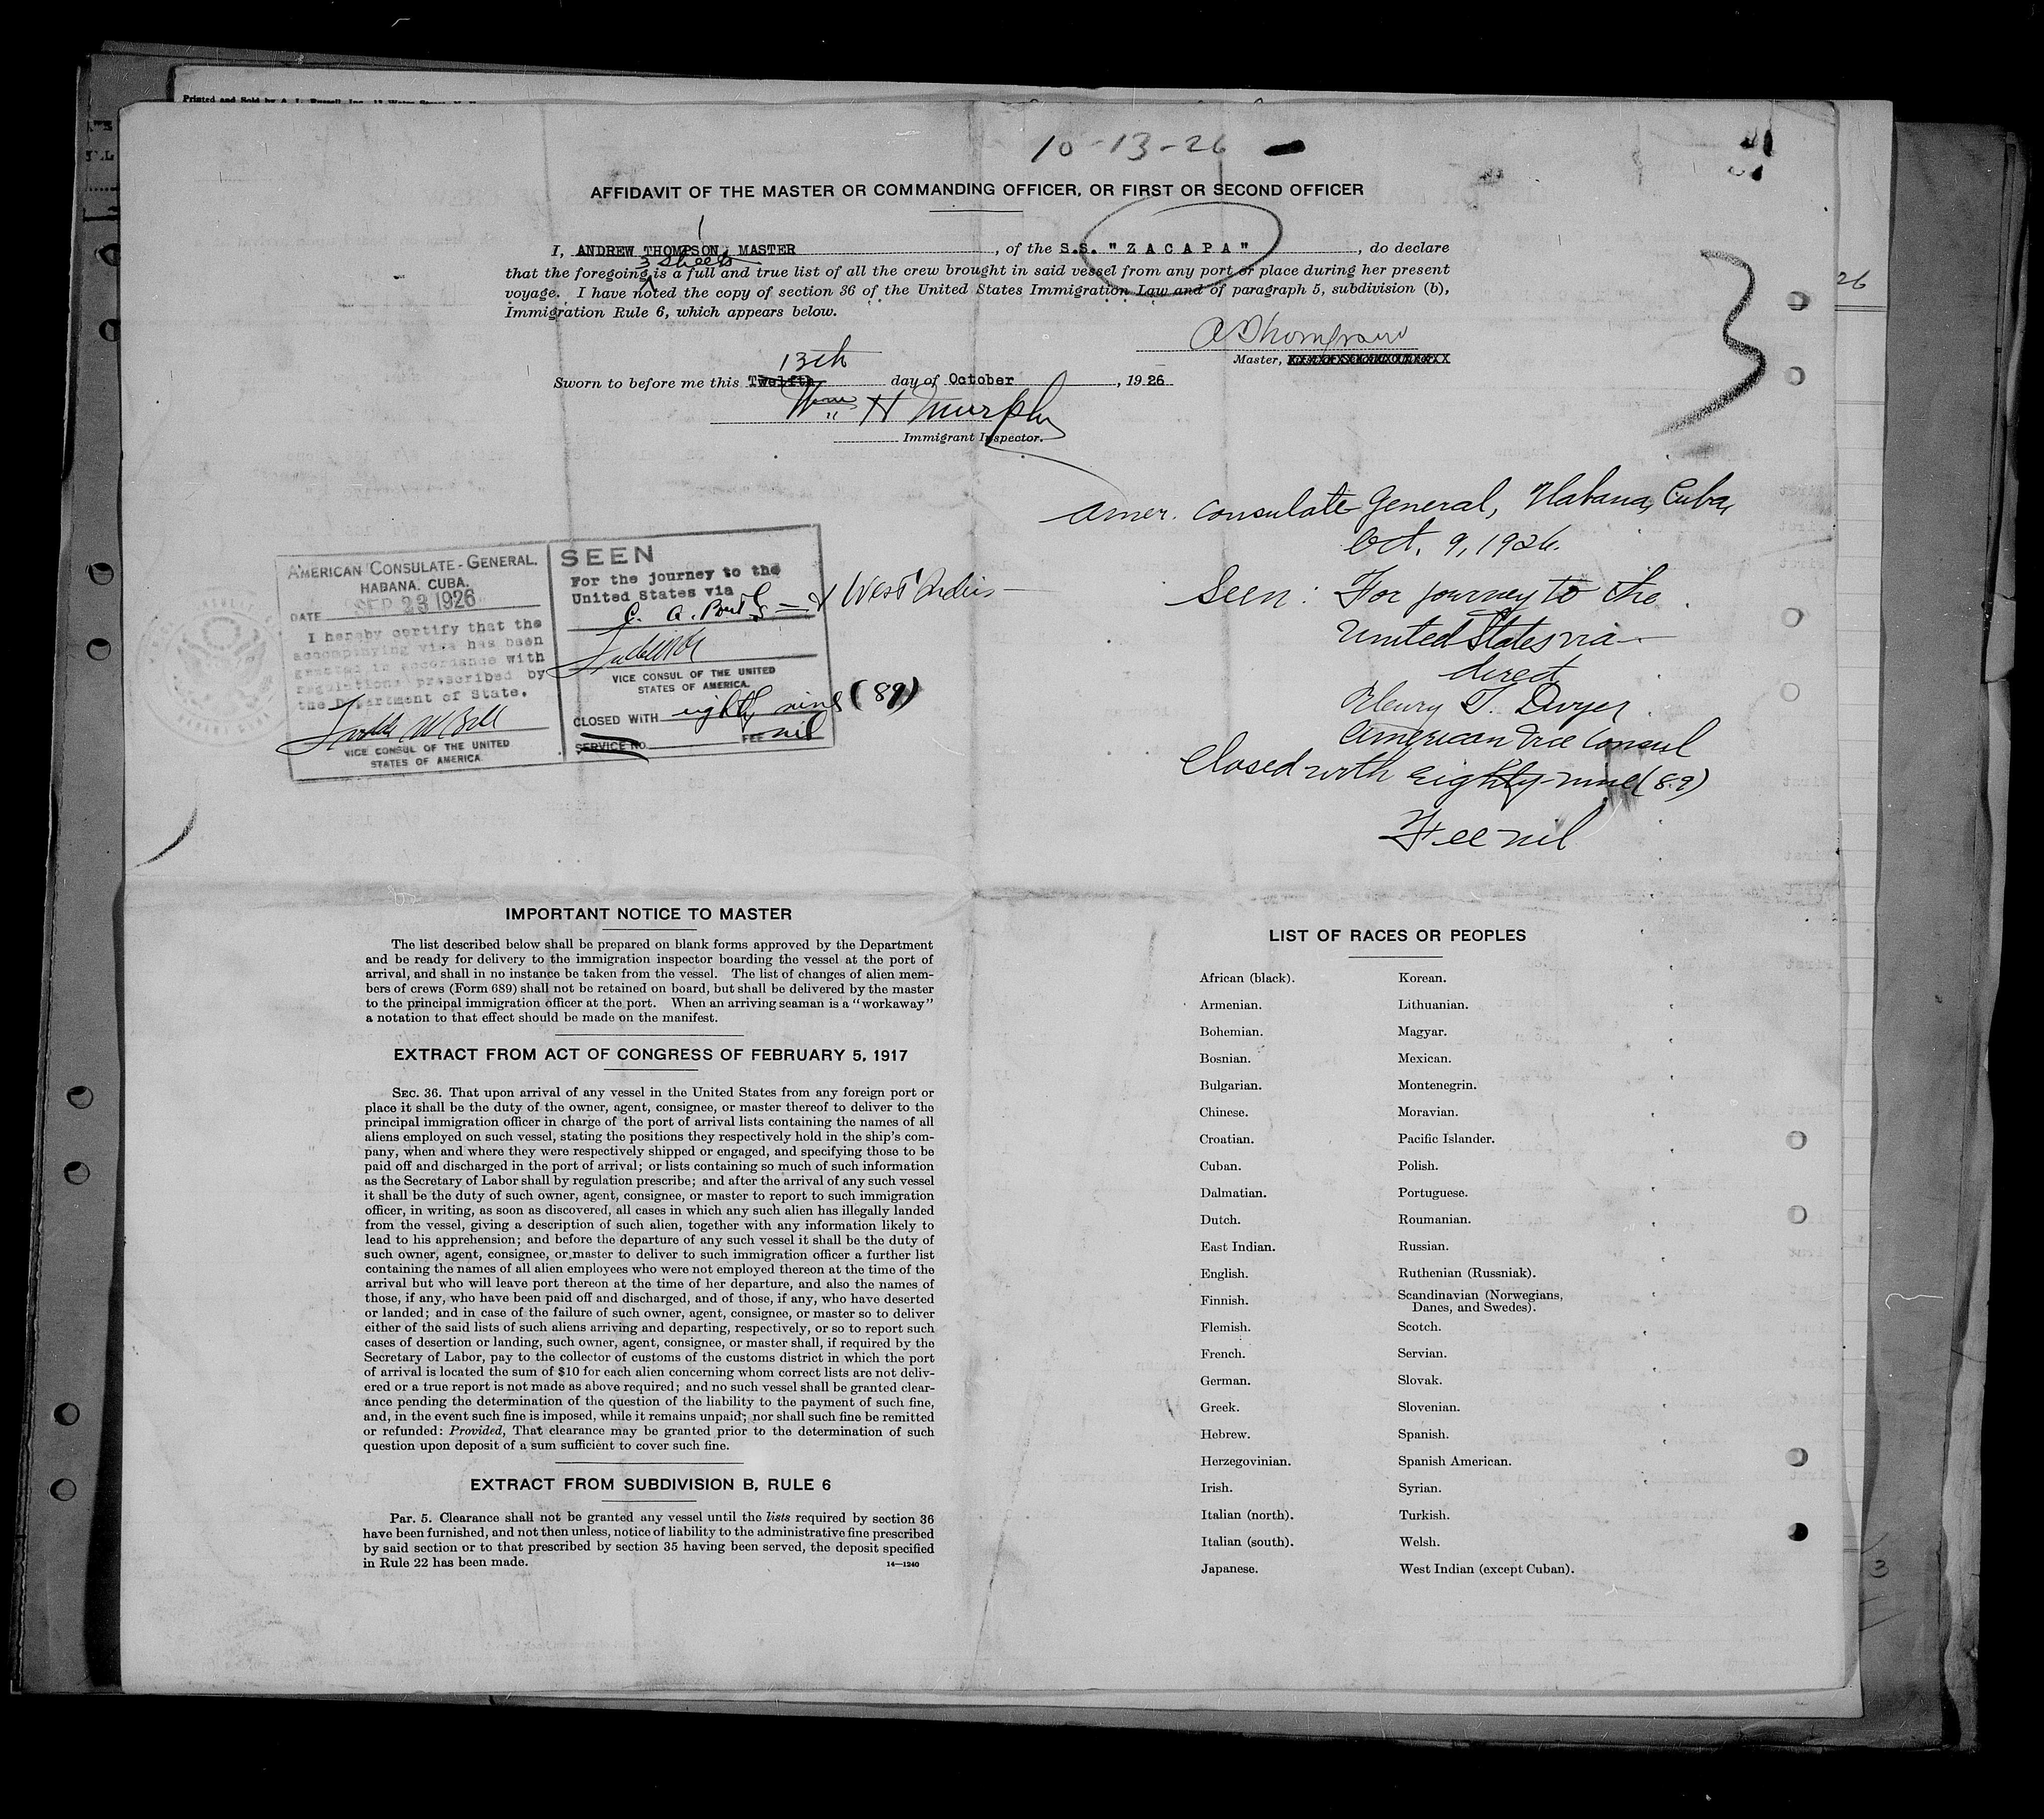 10-13-26
AFFIDAVIT OF THE MASTER OR COMMANDING OFFICER, OR FIRST OR SECOND OFFICER
I, ANDREW THOMPSON, MASTER, of the S.S. "ZACAPA", do declare
3 sheets
that the foregoing is a full and true list of all the crew brought in said vessel from any port or place during her present
voyage. I have noted the copy of section 36 of the United States Immigration Law and of paragraph 5, subdivision (b),
Immigration Rule 6, which appears below.
A Thompson
Master,
13th
Sworn to before me this Twelfth day of October, 1926
Wm H Murphy
Immigrant Inspector.
3
Amer. Consulate General, Habana, Cuba,
Oct. 9, 1926.
Seen: For journey to the
United States via
direct
Henry T. Dwyer
American Vice Consul
Closed with eighty-nine (89)
Fee nil
AMERICAN CONSULATE-GENERAL.
HABANA, CUBA.
DATE SEP 23 1926
I hereby certify that the
accompanying visa has been
granted in accordance with
regulations prescribed by
the Department of State.
VICE CONSUL OF THE UNITED
STATES OF AMERICA
SEEN
For the journey to the
United States via
C. A. Ports & West Indies
VICE CONSUL OF THE UNITED
STATES OF AMERICA.
CLOSED WITH eighty nine (89)
SERVICE No. FEE nil
IMPORTANT NOTICE TO MASTER
The list described below shall be prepared on blank forms approved by the Department
and be ready for delivery to the immigration inspector boarding the vessel at the port of
arrival, and shall in no instance be taken from the vessel. The list of changes of alien mem-
bers of crews (Form 689) shall not be retained on board, but shall be delivered by the master
to the principal immigration officer at the port. When an arriving seaman is a "workaway"
a notation to that effect should be made on the manifest.
EXTRACT FROM ACT OF CONGRESS OF FEBRUARY 5, 1917
SEC. 36. That upon arrival of any vessel in the United States from any foreign port or
place it shall be the duty of the owner, agent, consignee, or master thereof to deliver to the
principal immigration officer in charge of the port of arrival lists containing the names of all
aliens employed on such vessel, stating the positions they respectively hold in the ship's com-
pany, when and where they were respectively shipped or engaged, and specifying those to be
paid off and discharged in the port of arrival; or lists containing so much of such information
as the Secretary of Labor shall by regulation prescribe; and after the arrival of any such vessel
it shall be the duty of such owner, agent, consignee, or master to report to such immigration
officer, in writing, as soon as discovered, all cases in which any such alien has illegally landed
from the vessel, giving a description of such alien, together with any information likely to
lead to his apprehension; and before the departure of any such vessel it shall be the duty of
such owner, agent, consignee, or master to deliver to such immigration officer a further list
containing the names of all alien employees who were not employed thereon at the time of the
arrival but who will leave port thereon at the time of her departure, and also the names of
those, if any, who have been paid off and discharged, and of those, if any, who have deserted
or landed; and in case of the failure of such owner, agent, consignee, or master so to deliver
either of the said lists of such aliens arriving and departing, respectively, or so to report such
cases of desertion or landing, such owner, agent, consignee, or master shall, if required by the
Secretary of Labor, pay to the collector of customs of the customs district in which the port
of arrival is located the sum of $10 for each alien concerning whom correct lists are not deliv-
ered or a true report is not made as above required; and no such vessel shall be granted clear-
ance pending the determination of the question of the liability to the payment of such fine,
and, in the event such fine is imposed, while it remains unpaid; nor shall such fine be remitted
or refunded: Provided, That clearance may be granted prior to the determination of such
question upon deposit of a sum sufficient to cover such fine.
EXTRACT FROM SUBDIVISION B, RULE 6
Par. 5. Clearance shall not be granted any vessel until the lists required by section 36
have been furnished, and not then unless, notice of liability to the administrative fine prescribed
by said section or to that prescribed by section 35 having been served, the deposit specified
in Rule 22 has been made.
14—1240
LIST OF RACES OR PEOPLES
African (black).
Armenian.
Bohemian.
Bosnian.
Bulgarian.
Chinese.
Croatian.
Cuban.
Dalmatian.
Dutch.
East Indian.
English.
Finnish.
Flemish.
French.
German.
Greek.
Hebrew.
Herzegovinian.
Irish.
Italian (north).
Italian (south).
Japanese.
Korean.
Lithuanian.
Magyar.
Mexican.
Montenegrin.
Moravian.
Pacific Islander.
Polish.
Portuguese.
Roumanian.
Russian.
Ruthenian (Russniak).
Scandinavian (Norwegians,
Danes, and Swedes).
Scotch.
Servian.
Slovak.
Slovenian.
Spanish.
Spanish American.
Syrian.
Turkish.
Welsh.
West Indian (except Cuban).
26
3